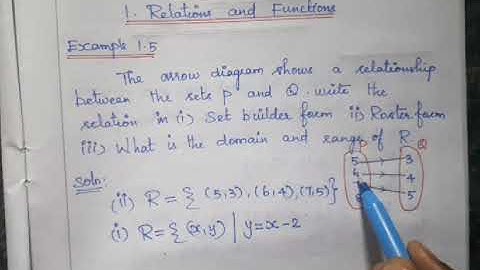 1. Relations and Functions
Example 1.5
The arrow diagram shows a relationship
between the sets P and Q. write the
relation in (i) Set builder form ii) Roster form
iii) What is the domain and range of R
Soln:
P Q
5 3
4
5
(ii) R = { (5,3), (6,4), (7,5)}
(i) R = {(x,y) | y=x-2